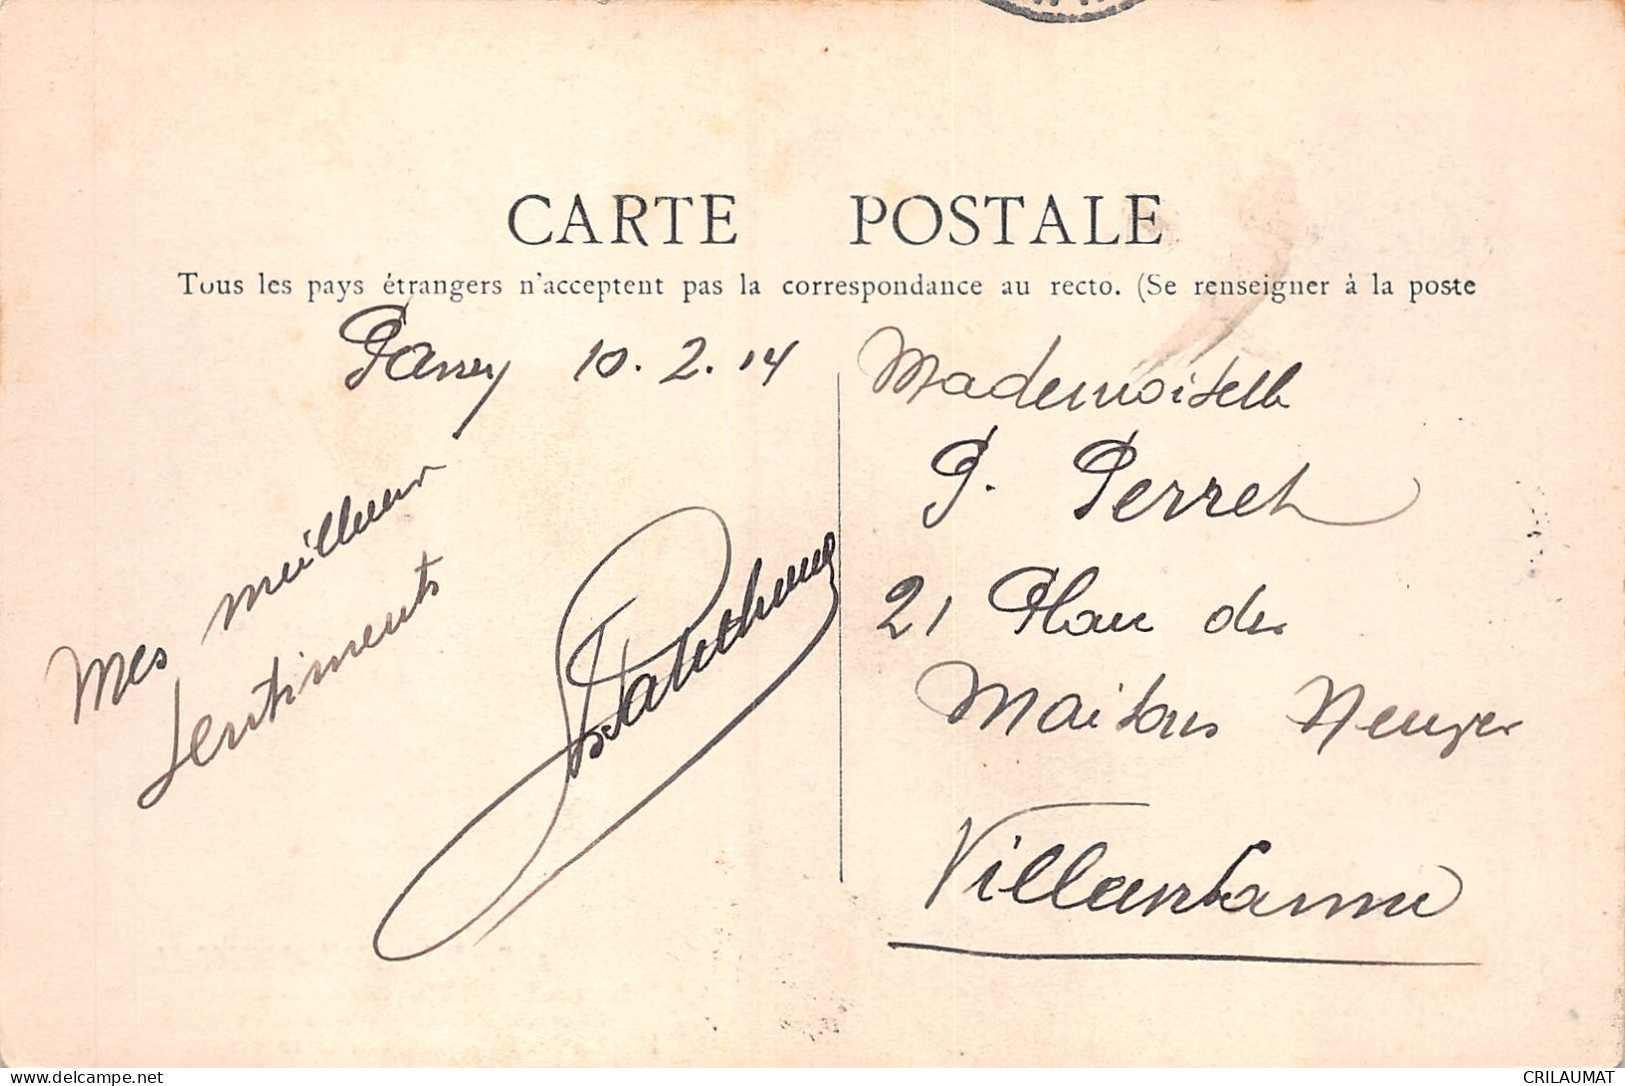 CARTE POSTALE
Tous les pays étrangers n'acceptent pas la correspondance au recto. (Se renseigner à la poste
10.2.14
Mes meilleur
sentiments
Mademoiselle
P. Perret
21 Place des
Maisons Neuves
Villeurbanne
delcampe.net
CRILAUMAT